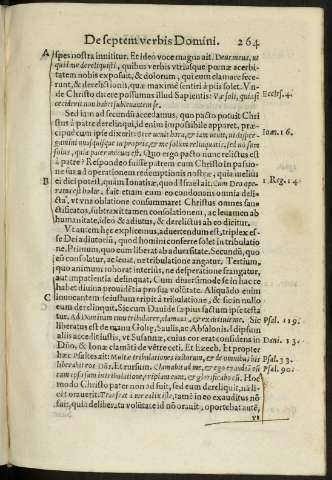 De septem verbis Domini. 264
A spes nostra innititur. Et ideo voce magna ait. Deus meus, ut
quid me dereliquisti, quibus verbis vtriusque pœnæ acerbi-
tatem nobis exposuit, & dolorum, qui eum elamare fece-
runt, & derelictionis, quæ maximè sentiri à piis solet. Vn-
de Christo dicere possumus illud Sapientis: Væ soli, quia si Eccles. 4.
ceciderit non habet subleuantem se.
Sed iam ad secundū accedamus, quo pacto potuit Chri
stus à patre derelinqui, id enim impossibile apparet, præ
cipuè cum ipse dixerit: Ioan. 16.
solus, quia pater meus est. Quo ergo pacto nunc relictus est
à patre? Respondeo fuisse patrem cum Christo in passio
ne sua ad operationem redemptionis nostræ, quia melius
B ei dici potest, quàm Ionathæ, quod Israel ait. Cum Deo ope- 1. Reg. 14.
ratus est hodie, fuit etiam cum eo
cta, vt vna oblatione consummaret Christus omnes san-
ctificatos, subtraxit tamen consolationem, ac leuamen ab
humanitate, ideò & adiutus, & derelictus ab eo dicitur.
Vt autem hæc explicemus, aduertendum est, triplex es-
se Dei adiutoriū, quod homini conferre solet in tribulatio
ne. Primum, quo eum liberat ab aduersitate. Secundū, quo
eū consolatur, ac leuat, ne tribulatione angatur. Tertium,
quo animum roborat interius, ne desperatione frangatur,
aut impatientia delinquat. Cum diuersimodè se in hac re
habet diuina prouidētia pro sua volūtate. Aliquādo enim
C inuocantem se iustum eripit à tribulatione, & sic in nullo
eum derelinquit. Sic cum Dauide sæpius factum ipse testa
tur. Ad Dominum cum tribularer, clamaui, & exaudiuit me. Sic Psal. 119.
liberatus est de manu Goliæ, Saulis, ac Absalonis. Idipsum
aliis accedit iustis, vt Susannæ, cuius cor erat considens in Dani. 13.
Dño, & Ionæ clamāti de vētre ceti. Et Ezech. Et propter
hæc Psaltes ait: Multæ tribulationes iustorum, & de omnibus his Psal. 33.
liberabit eos Dñs. Et rursum. Clamabit ad me, & ego exaudiā eū Psal. 90.
cum ipso sum in tribulatione, eripiam eum, & glorificabo eū. Hoc
modo Christo pater non ad fuit, sed eum dereliquit, vt li-
cet orauerit. Transeat à me calix iste, tamē in eo exauditus nō
fuit, quia deliberata volūtate id nō orauit, oportebat autē,
vt